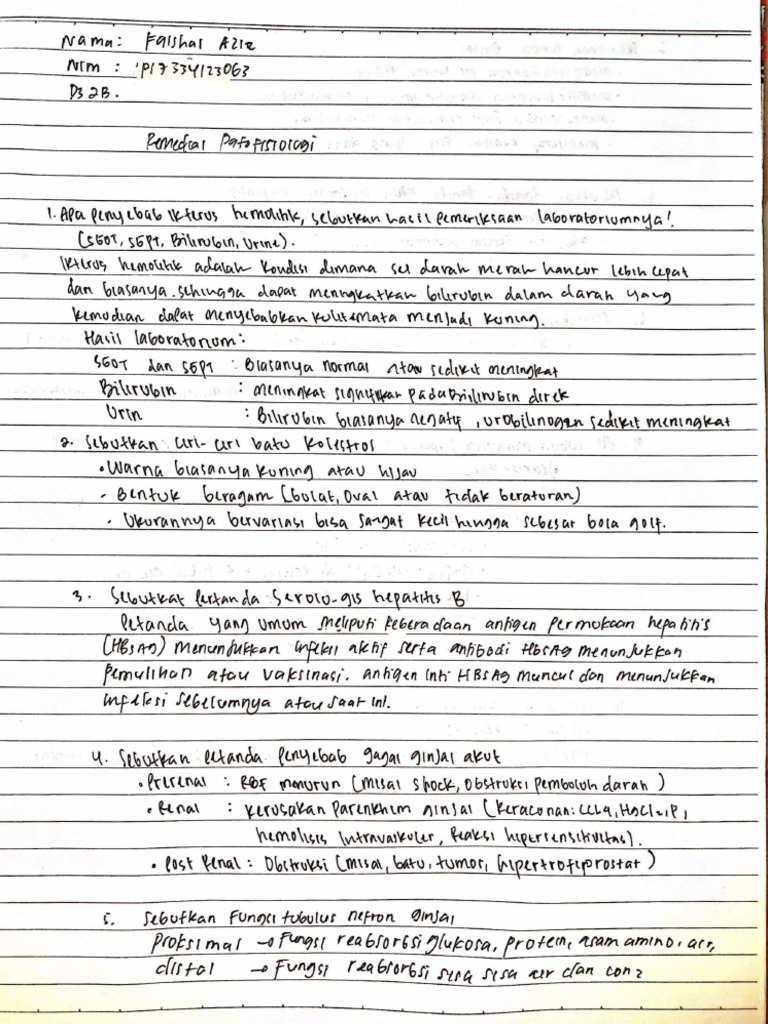 Nama: Faishal Aziz
NIM : P17334123063
D3 2B.
Remedial Patofisiologi
1. Apa penyebab ikterus hemolitik, sebutkan hasil pemeriksaan laboratoriumnya!
(SGOT, SGPT, Bilirubin, Urine).
Ikterus hemolitik adalah kondisi dimana sel darah merah hancur lebih cepat
dari biasanya. sehingga dapat meningkatkan bilirubin dalam darah yang
kemudian dapat menyebabkan kulit & mata menjadi kuning.
Hasil laboratorium:
SGOT dan SGPT : Biasanya normal atau sedikit meningkat
Bilirubin : meningkat signifikan pada Bilirubin direk
Urin : Bilirubin biasanya negatif, urobilinogen sedikit meningkat
2. Sebutkan ciri-ciri batu kolestrol
• Warna biasanya kuning atau hijau
- Bentuk beragam (bulat, oval atau tidak beraturan)
• Ukurannya bervariasi bisa sangat kecil hingga sebesar bola golf.
3. Sebutkat pertanda Serolo-gis hepatitis B
Petanda yang umum meliputi keberadaan antigen permukaan hepatitis
(HBsAg) menunjukkan infeksi aktif serta antibodi HBsAg menunjukkan
pemulihan atau vaksinasi. antigen inti HBsAg muncul dan menunjukkan
infeksi sebelumnya atau saat ini.
4. Sebutkan petanda penyebab gagal ginjal akut
• Prerenal : RBF menurun (misal shock, obstruksi pembuluh darah)
• Renal : kerusakan parenkhim ginjal (keracunan: CCl4, HgCl2,
hemolisis intravaskuler, reaksi hipersensitivitas).
• Post Renal : Obstruksi (misal, batu, tumor, hipertrofi prostat)
5. Sebutkan Fungsi tubulus nefron ginjal
Proksimal → Fungsi reabsorbsi glukosa, protein, asam amino, air,
distal → Fungsi reabsorbsi sisa sisa air dan